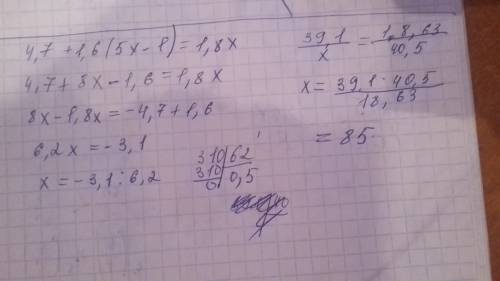 4,7 + 1,6(5x-1) = 1,8x
4,7 + 8x - 1,6 = 1,8x
8x - 1,8x = -4,7 + 1,6
6,2x = -3,1
x = -3,1 : 6,2
310 62
310 0,5
0
39,1 / x = 1,8,63 / 40,5
x = 39,1 · 40,5 / 18,63
= 85